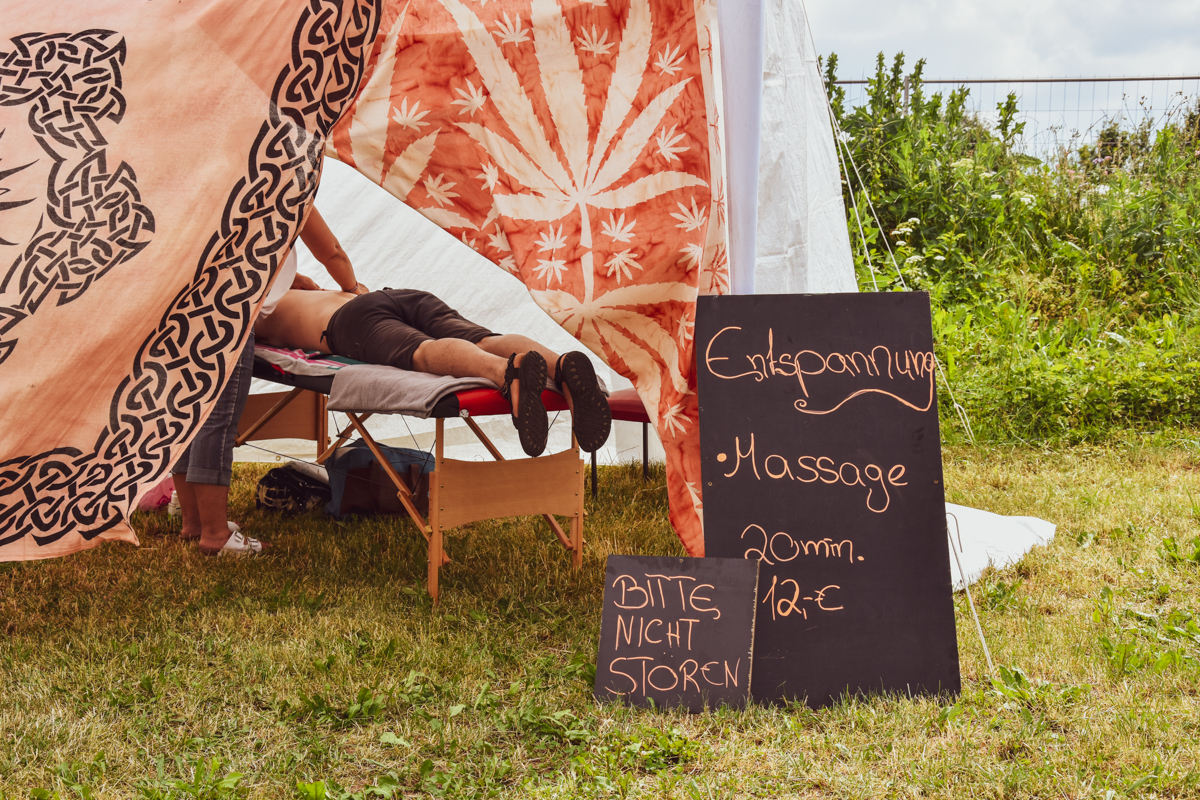 Entspannung
•Massage
20min.
12,-€
BITTE,
NICHT
STÖREN